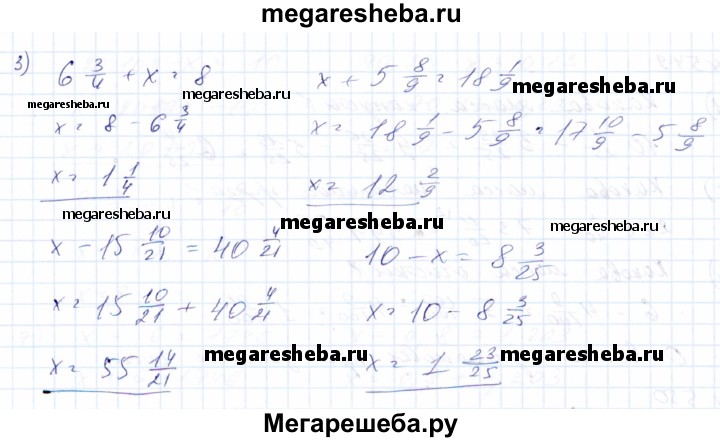 megaresheba.ru
3) 6 3/4 + x = 8
x + 5 8/9 = 18 1/9
megaresheba.ru
megaresheba.ru
megaresheba.ru
x = 8 - 6 3/4
x = 18 1/9 - 5 8/9 = 17 10/9 - 5 8/9
megaresheba.ru
x = 1 1/4
x = 12 2/9
megaresheba.ru
megaresheba.ru
megaresheba.ru
x - 15 10/21 = 40 4/21
10 - x = 8 3/25
x = 15 10/21 + 40 4/21
x = 10 - 8 3/25
x = 55 14/21
megaresheba.ru
x = 1 23/25
megaresheba.ru
Мегарешеба.ру